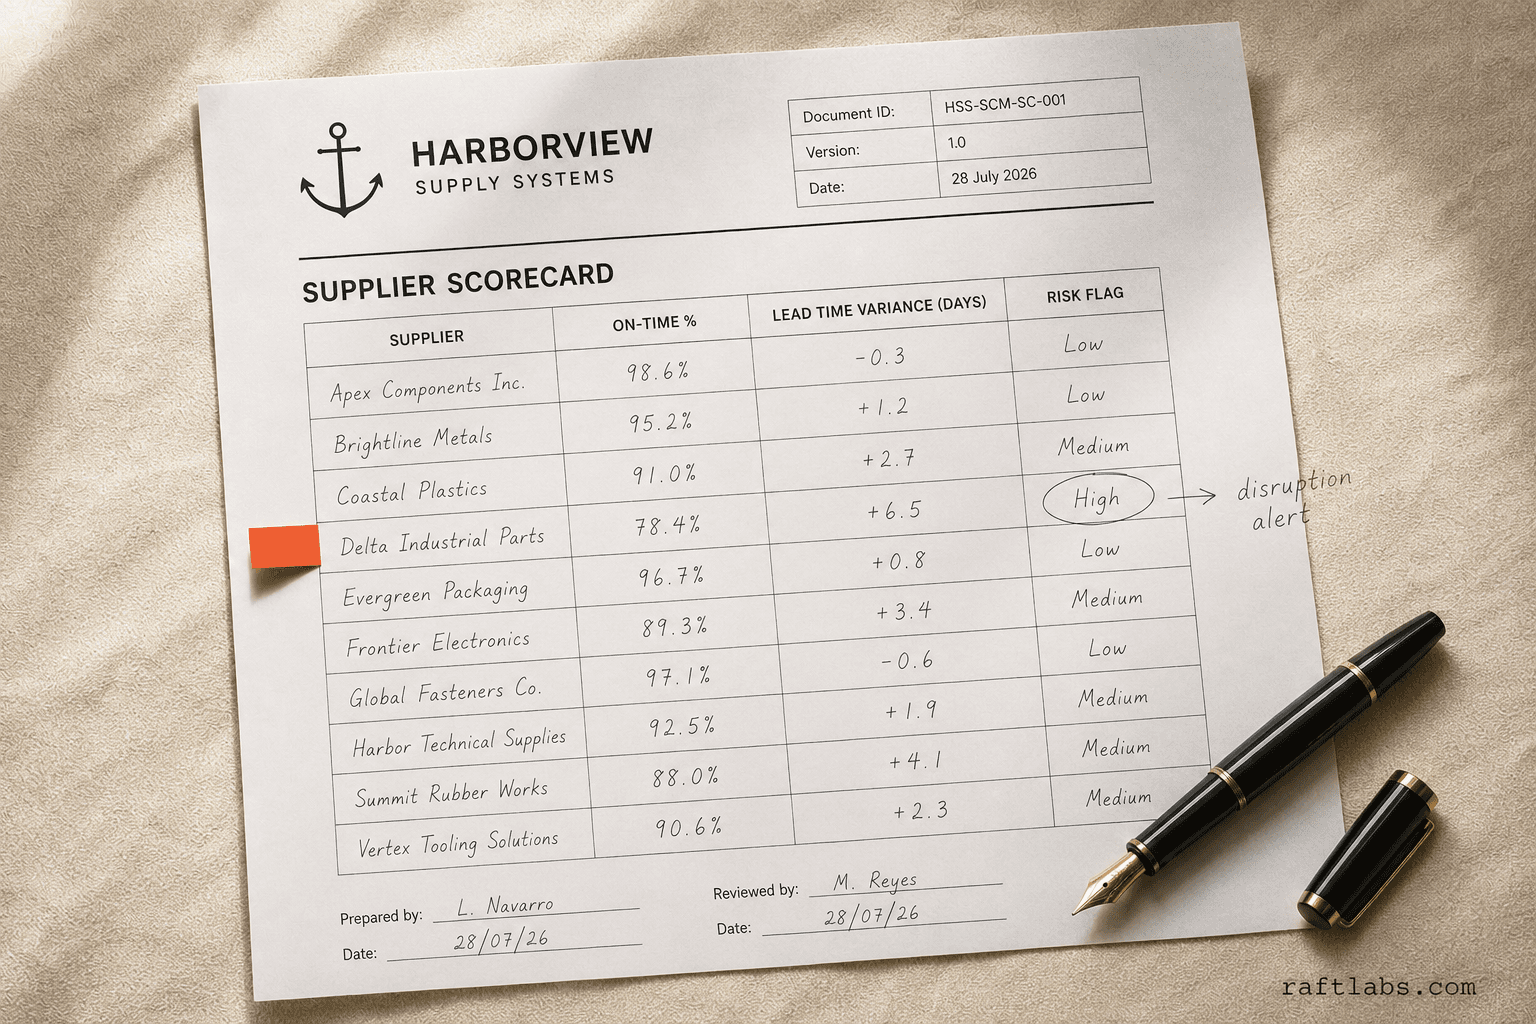 HARBORVIEW
SUPPLY SYSTEMS
Document ID: HSS-SCM-SC-001
Version: 1.0
Date: 28 July 2026
SUPPLIER SCORECARD
SUPPLIER ON-TIME % LEAD TIME VARIANCE (DAYS) RISK FLAG
Apex Components Inc. 98.6% -0.3 Low
Brightline Metals 95.2% +1.2 Low
Coastal Plastics 91.0% +2.7 Medium
Delta Industrial Parts 78.4% +6.5 High → disruption alert
Evergreen Packaging 96.7% +0.8 Low
Frontier Electronics 89.3% +3.4 Medium
Global Fasteners Co. 97.1% -0.6 Low
Harbor Technical Supplies 92.5% +1.9 Medium
Summit Rubber Works 88.0% +4.1 Medium
Vertex Tooling Solutions 90.6% +2.3 Medium
Prepared by: L. Navarro
Date: 28/07/26
Reviewed by: M. Reyes
Date: 28/07/26
raftlabs.com